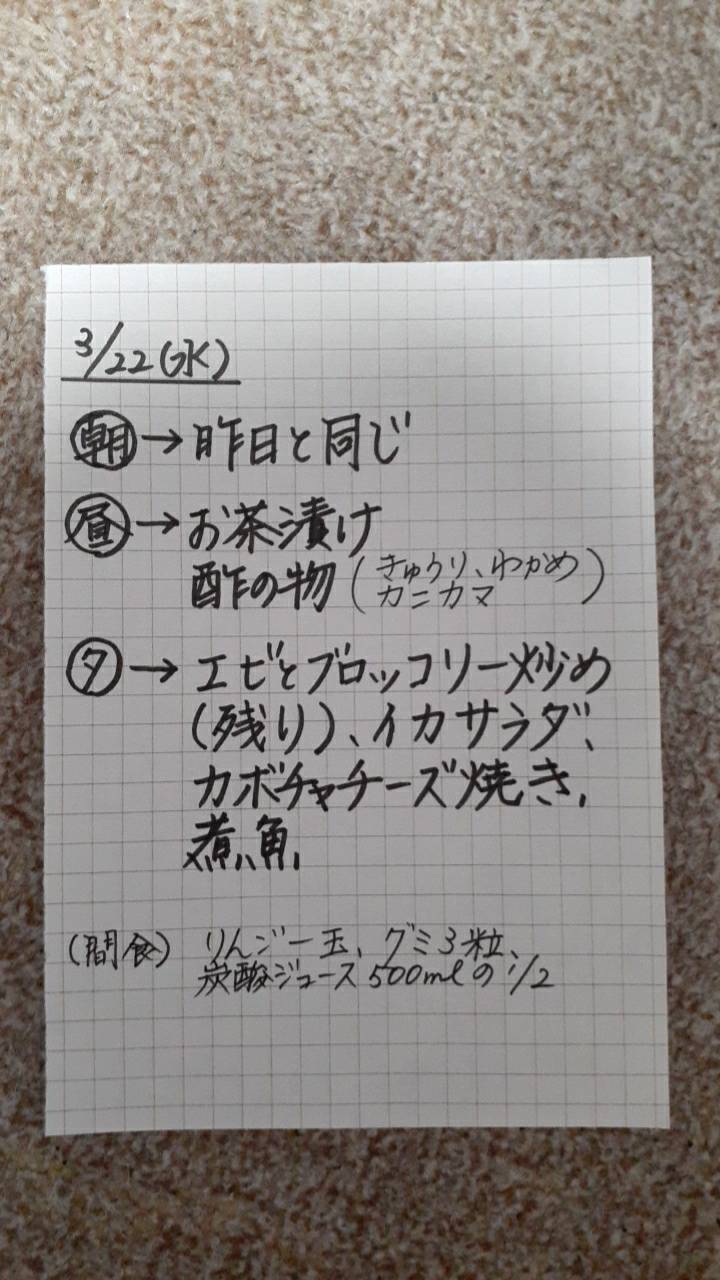 3/22(水)
朝→昨日と同じ
昼→お茶漬け
酢の物(きゅうり、わかめ
カニカマ)
夕→エビとブロッコリー炒め
(残り)、イカサラダ、
カボチャチーズ焼き、
煮魚、
(間食) りんご一玉、グミ3粒、
炭酸ジュース500mlの1/2